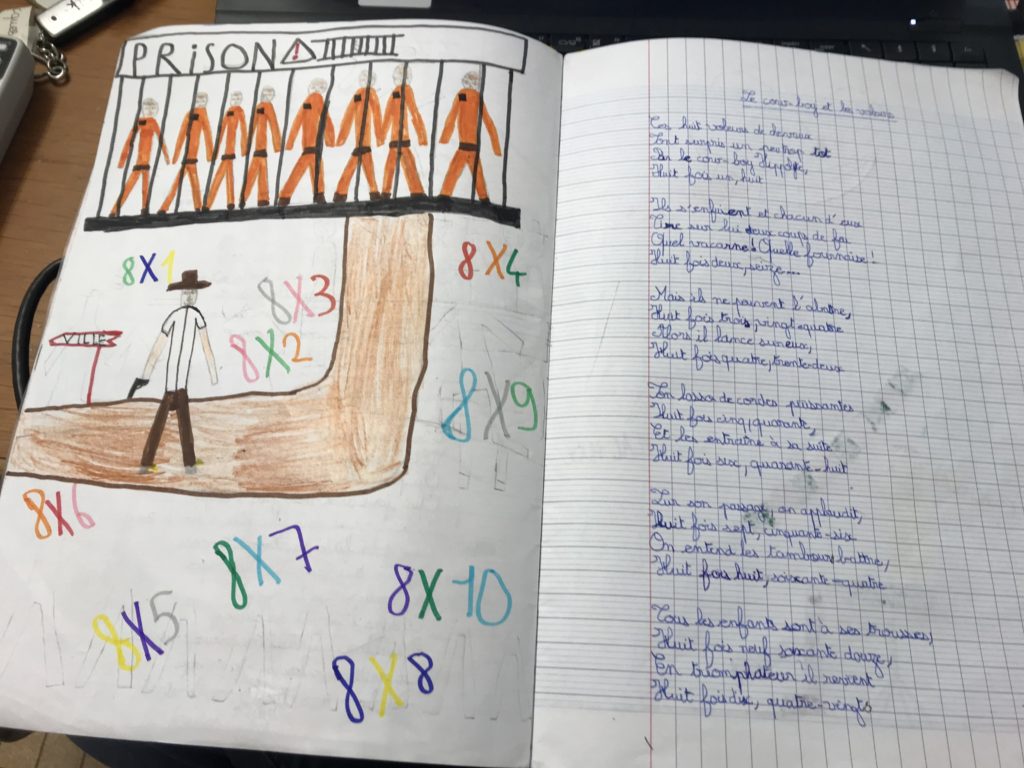 PRISON
8X1
8X3
8X4
VILLE
8X2
8X9
8X6
8X7
8X10
8X5
8X8
Le cow-boy et les voleurs
Les huit voleurs de chevaux
Ont surpris un peu trop tôt
Par le cow-boy
Huit fois un, huit
Ils s'enfuient et chacun d'eux
Tire sur lui deux coups de feu
Quel vacarme! Quelle fournaise!
Huit fois deux, seize...
Mais ils ne peuvent l'abattre,
Huit fois trois vingt-quatre
Alors il lance
Huit fois quatre, trente-deux
Un lasso de cordes puissantes
Huit fois cinq, quarante,
Et les entraîne à sa suite
Huit fois six, quarante-huit
Sur son passage, on applaudit,
Huit fois sept, cinquante-six
On entend les tambours battre,
Huit fois huit, soixante-quatre
Tous les enfants sont à ses trousses,
Huit fois neuf soixante douze,
En triomphateur il revient
Huit fois dix, quatre-vingts